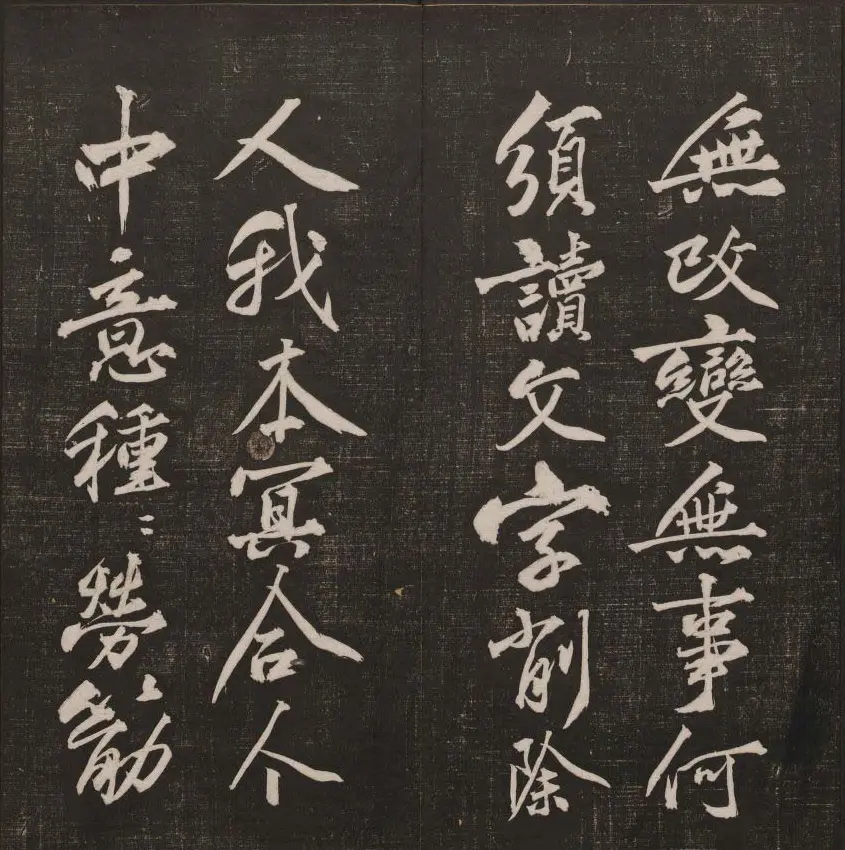 無改變無事何
須讀文字削除
人我本冥合个
中意種〻勞筋